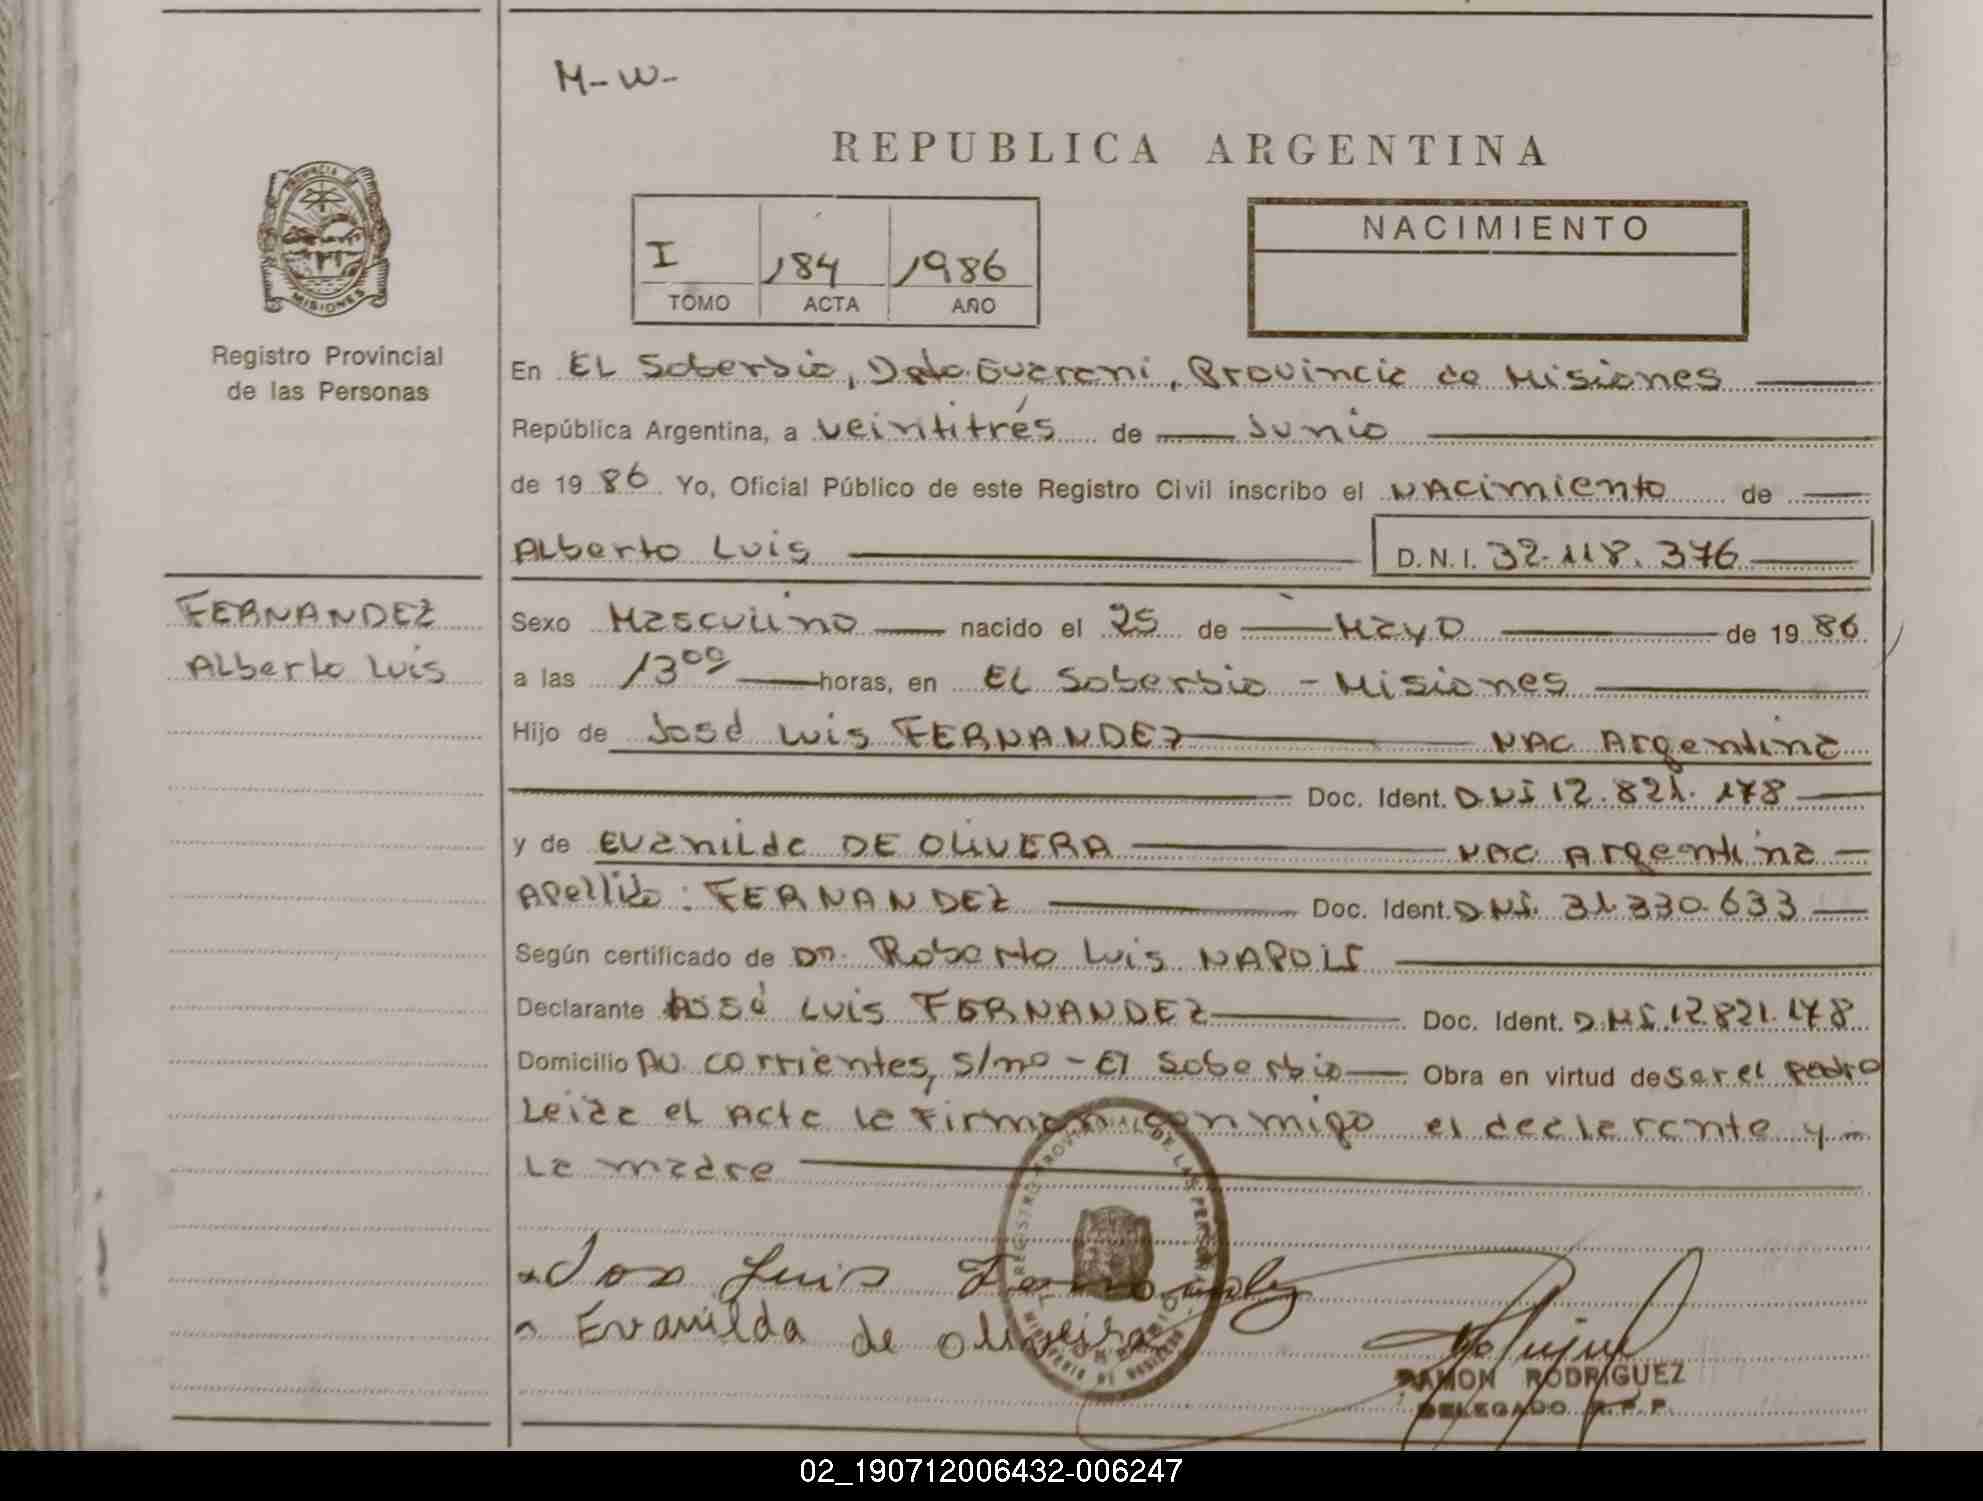 M-W-
REPUBLICA ARGENTINA
I 184 1986
TOMO ACTA AÑO
NACIMIENTO
PROVINCIA DE MISIONES
Registro Provincial
de las Personas
En EL Soberbio, Dpto. Guarani, Provincia de Misiones
República Argentina, a veintitrés de Junio
de 19 86 Yo, Oficial Público de este Registro Civil inscribo el NACimiento de
ALberto Luis D.N.I. 32.118.376
FERNANDEZ
ALberto Luis
Sexo Masculino nacido el 25 de Mayo de 19 86
a las 13 00 horas, en EL Soberbio - Misiones
Hijo de José Luis FERNANDEZ NAC Argentina
Doc. Ident. DNI 12.821.178
y de Evanilda DE OLIVERA NAC Argentina
Apellido: FERNANDEZ Doc. Ident. DNI. 31.330.633
Según certificado de Dr. Roberto Luis NAPOLI
Declarante José Luis FERNANDEZ Doc. Ident. D.N.I. 12821.178
Domicilio AV. Corrientes, s/nº - El Soberbio Obra en virtud de ser el padre
Leida el Acta la Firman conmigo el declarante y
La madre
REGISTRO PROVINCIAL DE LAS PERSONAS
Jose Luis Fernandez
Evanilda de oliveira
RAMON RODRIGUEZ
DELEGADO R.P.P.
02_190712006432-006247